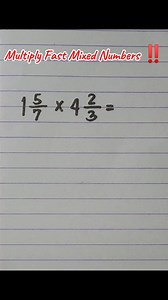 Multiply Fast Mixed Numbers ‼️
1 5/7 x 4 2/3 =